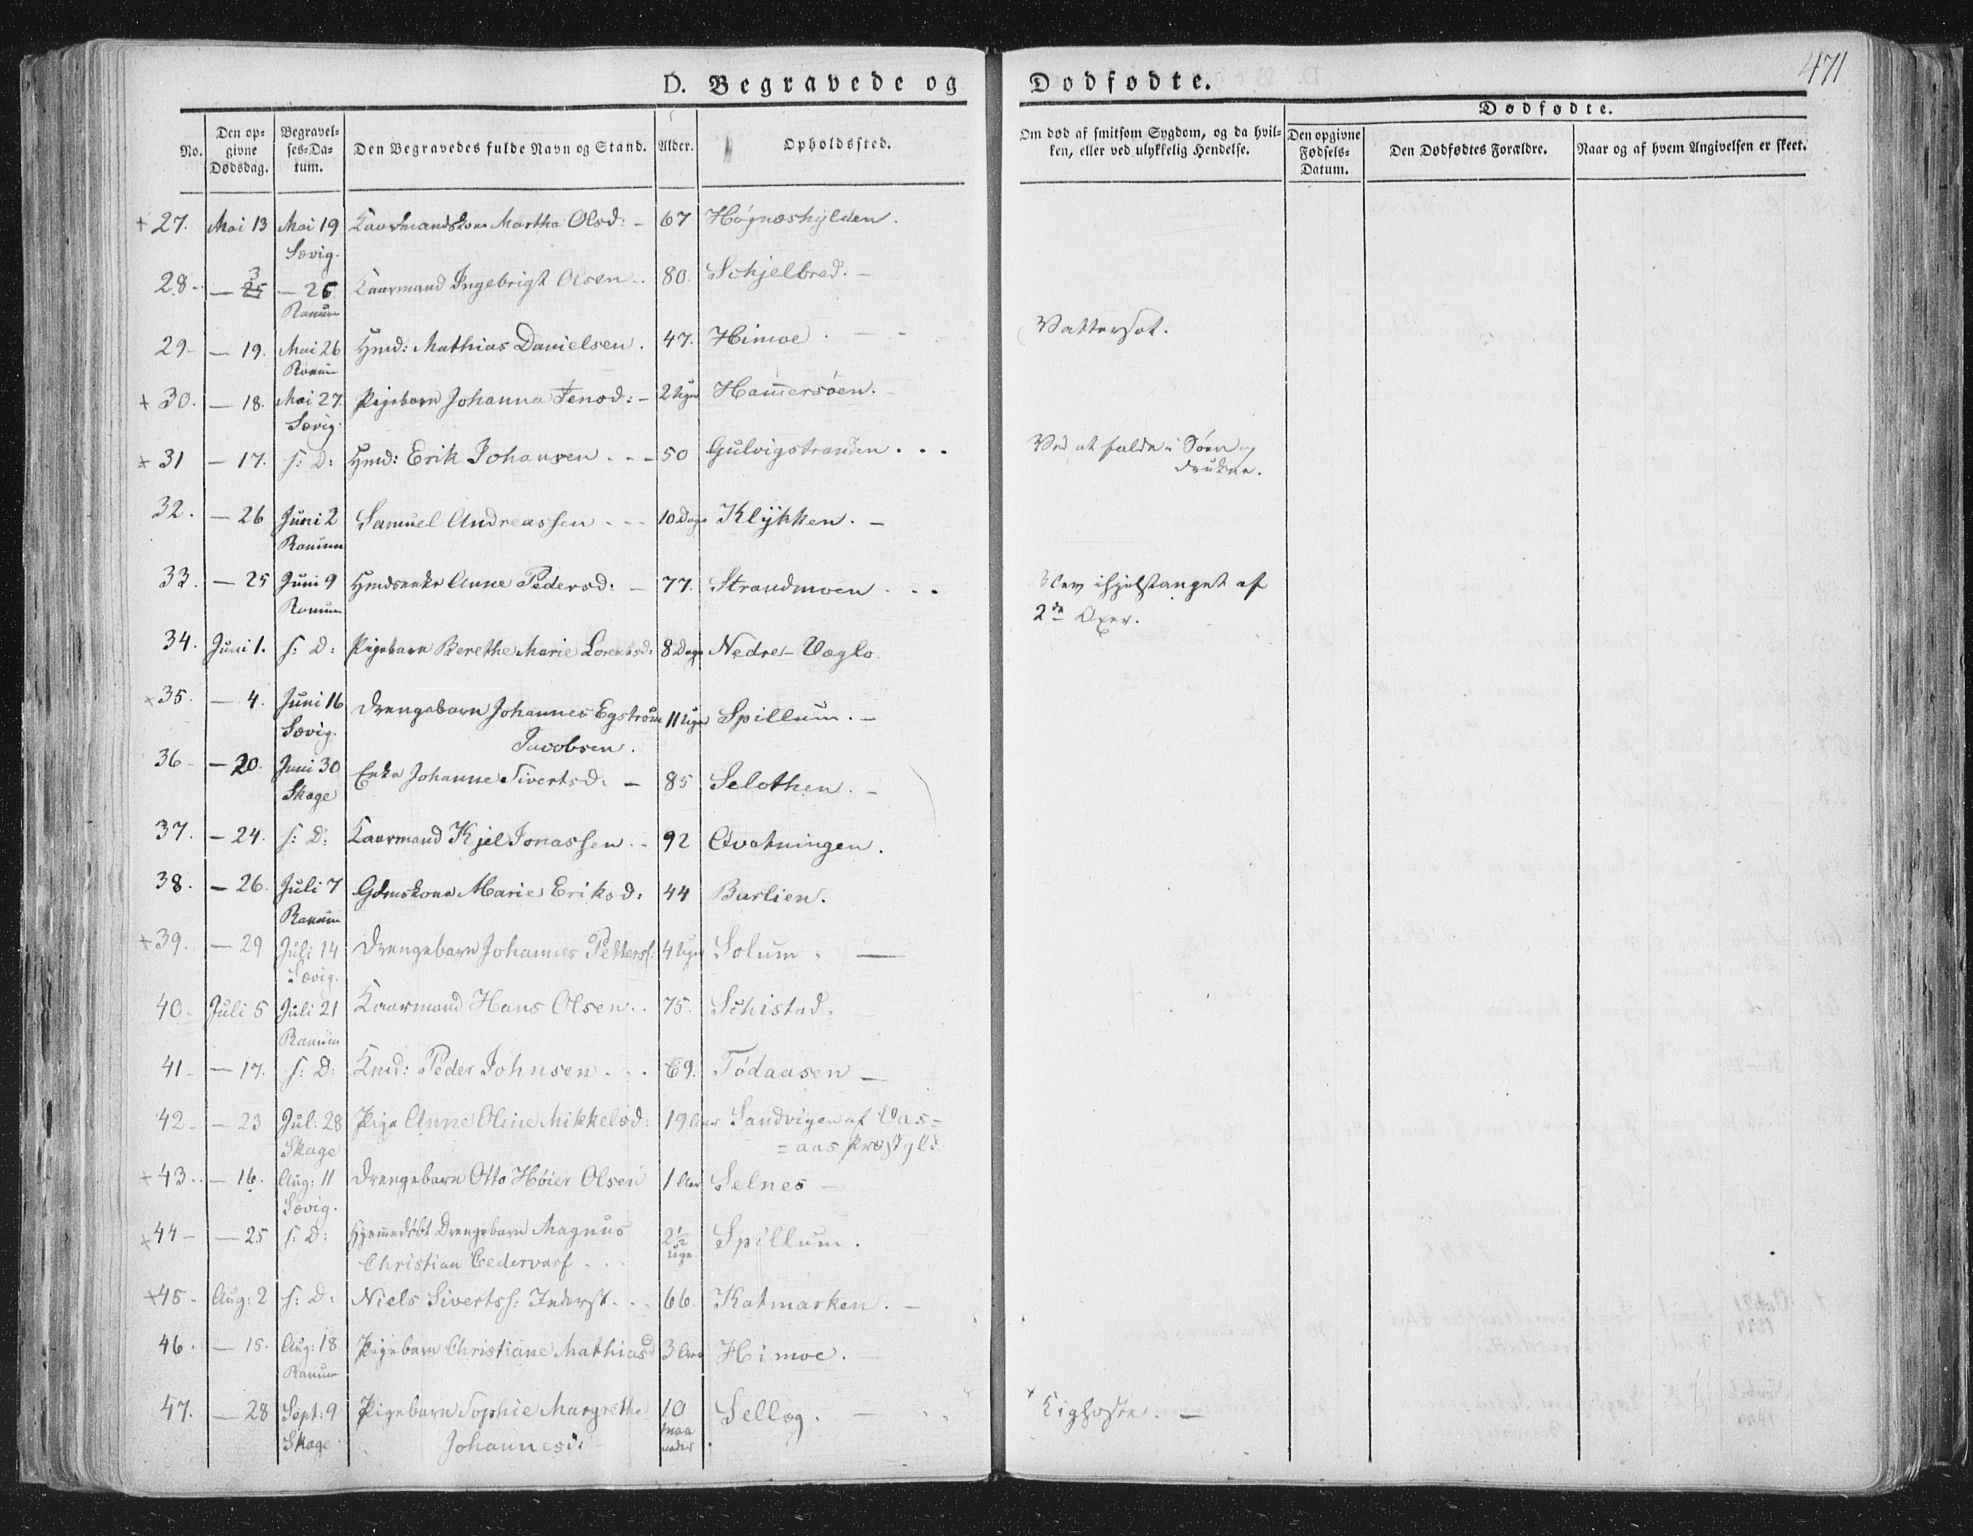 471
D. Begravede og Dødfødte.
No.
Den op-
givne
Dødsdag.
Begravel-
ses-Da-
tum.
Den Begravedes fulde Navn og Stand.
Alder.
Opholdssted.
Om død af smitsom Sygdom, og da hvil-
ken, eller ved ulykkelig Hendelse.
Dødfødte.
Den opgivne
Fødsels-
Datum.
Den Dødfødtes Forældre.
Naar og af hvem Angivelsen er skeet.
+ 27. Mai 13 Mai 19 Kaarmandskone Martha Olsd: - 67 Høgnæshylden.
Sævig.
28 - — 25 3 — 26 Kaarmand Ingebrigt Olsen .. 80. Schjelbred. -
Ranum
29 - — 19. Mai 26 Hmd: Mathias Danielsen. 47. Himoe. Vattersot.
Ranum
+ 30. — 18. Mai 27 Pigebarn Johanna Jensd: - 2 Uger Ham̅ersøen.
Sævig.
+ 31 — 17. s: D: Hmd: Erik Johansen . - - 50 Gulvigstranden . . . Ved at falde i Søen og
drukne.
32. — 26 Juni 2 Samuel Andreassen - - - 10 Dage Klykken. -
Ranum
33. — 25 Juni 9 Hmdsenke Anne Pedersd: - 77. Strandmoen . . . Blev ihjelstanget af
Ranum 2de Oxer.
34. Juni 1. s: D: Pigebarn Berethe Marie Lorentsd: 8 Dage Nedre-Væglo
+ 35. — 4. Juni 16 Drengebarn Johannes Egstrøm 11 Uger Spillum. -
Sævig. Jacobsen.
36 - — 20. Juni 30 Enke Johanne Sivertsd: - 85 Selothen. -
Skage
37. — 24. s: D: Kaarmand Kjel Jonassen .. 92 Qvatningen.
38. — 26. Juli 7 Gdmskone Marie Eriksd: 44 Barlien.
Ranum
+ 39. — 29 Juli 14 Drengebarn Johannes Petters: 4 Uger Solum. —
Sævig.
40. Juli 5 Juli 21 Kaarmand Hans Olsen .. 75. Schistad.
Ranum
41 - — 17. s: D: Kmd: Peder Johnsen . . . 69. Tødaasen —
42 - — 23 Jul. 28 Pige Anne Oline Mikkelsd: 19 Aar Sandvigen af Vas=
Skage = aas Præstgld.
+ 43. — 16. Aug: 11 Drengebarn Otto Høier Olsen 1 Aar Selnes -
Sævig.
+ 44 - — 25 s: D: Hjem̅edøbt Drengebarn Magnus 2½ Spillum.
Christian Cedervarf . . . uge.
+ 45 - Aug: 2 s: D: Niels Siverts: Inderst . . . 66. Katmarken. -
46. — 15. Aug: 18 Pigebarn Christiane Mathiasd 3 Aar Himoe. -
Ranum
47. — 28 Sept: 9 Pigebarn Sophie Margrethe 10 Selløg. — Kighoste. -
Skage Johannesd: maa
neder